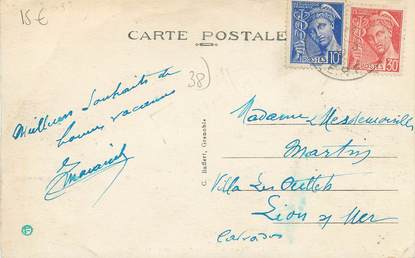 15€
CARTE POSTALE
POSTES
10c
POSTES
30c
38)
Meilleurs Souhaits de
bonnes vacances
Madame & Mesdemoiselles
Martin
Villa Les
Lion s/ Mer
Calvados
C. Baffert, Grenoble